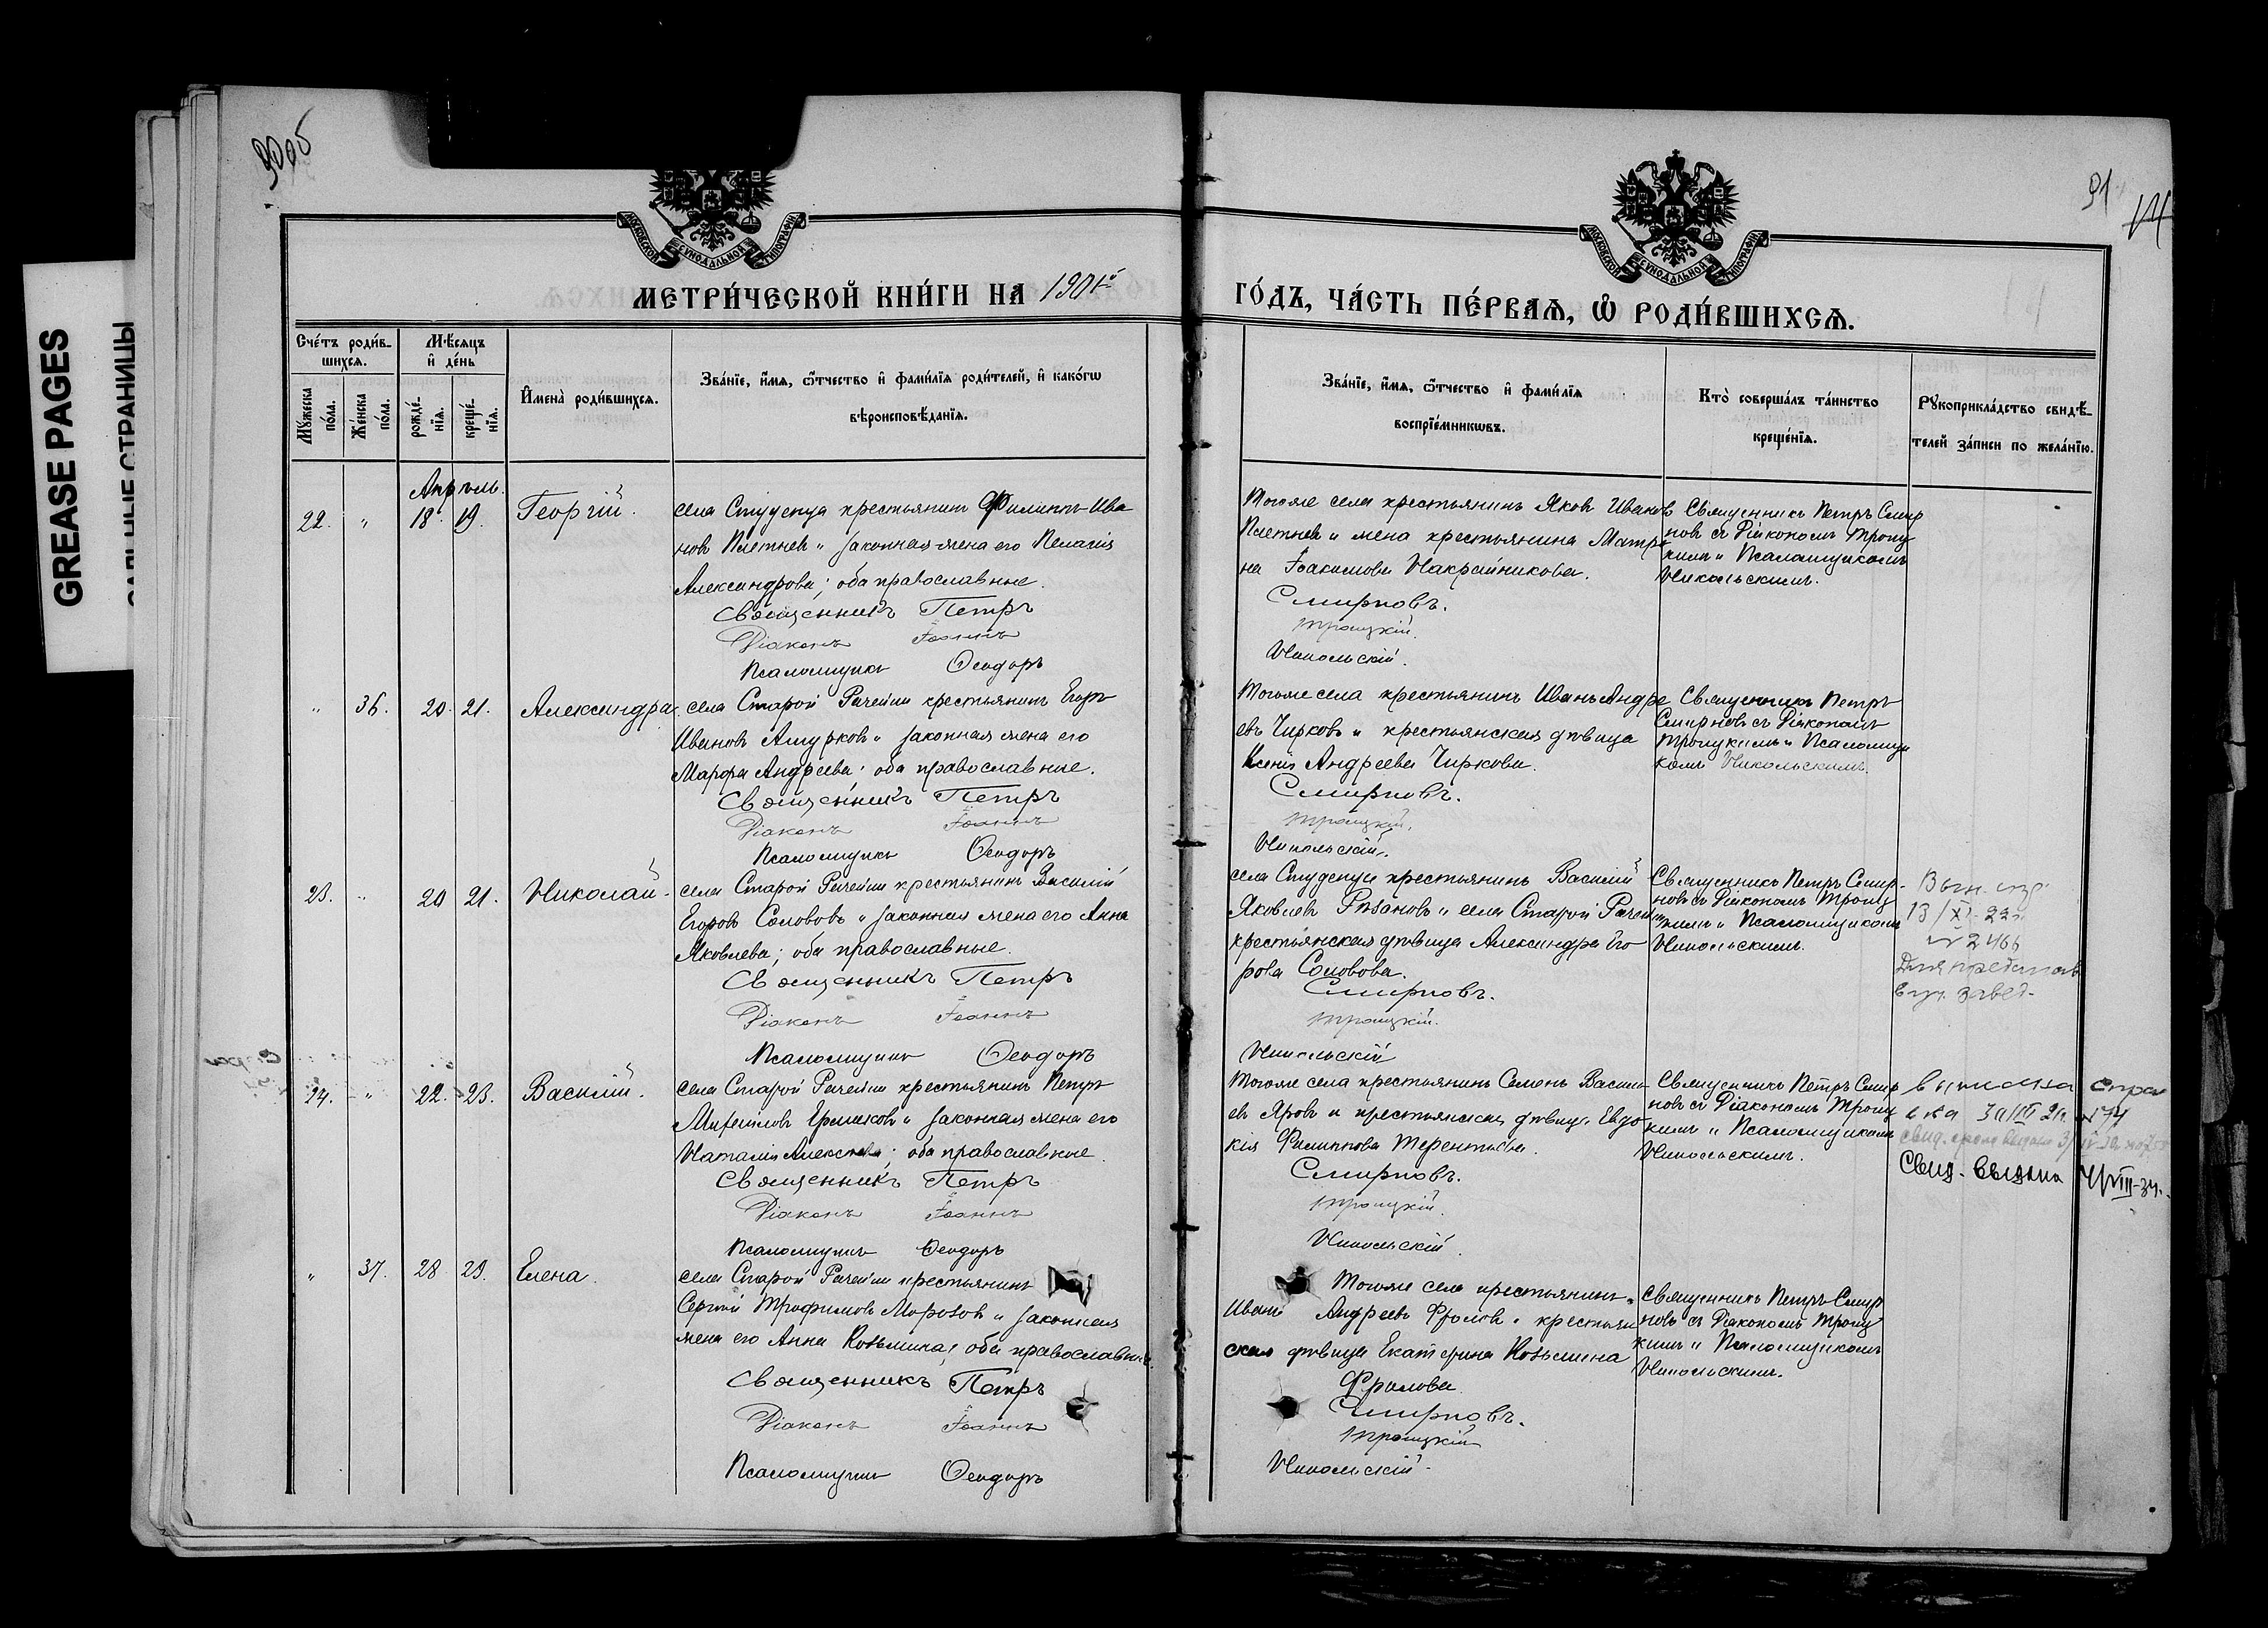 90 об
91
GREASE PAGES
САЛЬНЫЕ СТРАНИЦЫ
МОСКОВСКОЙ СѴНОДАЛЬНОЙ ТИПОГРАФІИ
МОСКОВСКОЙ СѴНОДАЛЬНОЙ ТИПОГРАФІИ
МЕТРИ́ЧЕСКОЙ КНИ́ГИ НА 1901й
ГО́ДЪ, ЧА́СТЬ ПЕ́РВАѦ, Ѡ҆ РОДИ́ВШИХСѦ.
Сче́тъ роди́в-
шихсѧ.
Мꙋ́жеска по́ла.
Же́нска по́ла.
Мѣ́сѧцъ
и҆ де́нь
рожде́-
нїѧ.
креще́-
нїѧ.
И҆мена̀ роди́вшихсѧ.
Зва́нїе, и҆́мѧ, ѻ҆́тчество и҆ фами́лїѧ роди́телей, и҆ како́гѡ
вѣроисповѣ́данїѧ.
Зва́нїе, и҆́мѧ, ѻ҆́тчество и҆ фами́лїѧ
воспрїе́мникѡвъ.
Кто̀ соверша́лъ та́инство
креще́нїѧ.
Рꙋкоприкла́дство свидѣ́-
телей за́писи по жела́нїю.
Апрѣль.
22. " 18. 19. Георгій.
села Студенца крестьянинъ Филиппъ Ива
новъ Плетневъ и законная жена его Пелагія
Александрова; оба православные.
Священникъ Петръ
Діаконъ Іоаннъ
Псаломщикъ Ѳеодоръ
Тогоже села крестьянинъ Яковъ Ивановъ
Плетневъ и жена крестьянина Матро
на Іоакимова Накрайникова.
Смирновъ.
Троицкій.
Никольскій.
Священникъ Петръ Смир
новъ съ Діакономъ Троиц
кимъ и Псаломщикомъ
Никольскимъ.
" 36. 20. 21. Александра.
села Старой Рачейки крестьянинъ Егоръ
Ивановъ Ашурковъ и законная жена его
Марфа Андреева; оба православные.
Священникъ Петръ
Діаконъ Іоаннъ
Псаломщикъ Ѳеодоръ
Тогоже села крестьянинъ Иванъ Андре
евъ Чирковъ и крестьянская дѣвица
Ксенія Андреева Чиркова.
Смирновъ.
Троицкій.
Никольскій.
Священникъ Петръ
Смирновъ съ Діакономъ
Троицкимъ и Псаломщи
комъ Никольскимъ.
23. " 20 21. Николай.
села Старой Рачейки крестьянинъ Василій
Егоровъ Солововъ и законная жена его Анна
Яковлева; оба православные.
Священникъ Петръ
Діаконъ Іоаннъ
Псаломщикъ Ѳеодоръ
села Студенца крестьянинъ Василій
Яковлевъ Рѣзановъ и села Старой Рачейки
крестьянская дѣвица Александра Его
рова Соловова.
Смирновъ.
Троицкій.
Никольскій
Священникъ Петръ Смир-
новъ съ Діакономъ Троиц
кимъ и Псаломщикомъ
Никольскимъ.
13/XI-22г.
№ 2466
Для представ
в уч. завед.
24. " 22. 23. Василій.
села Старой Рачейки крестьянинъ Петръ
Михайловъ Ермаковъ и законная жена его
Наталія Алексѣева; оба православные.
Священникъ Петръ
Діаконъ Іоаннъ
Псаломщикъ Ѳеодоръ
Тогоже села крестьянинъ Семенъ Василь
евъ Яровъ и крестьянская дѣвица Евдо
кія Филиппова Терентьева.
Смирновъ.
Троицкій.
Никольскій.
Священникъ Петръ Смир
новъ съ Діакономъ Троиц
кимъ и Псаломщикомъ
Никольскимъ.
Свид. выдана 4/VIII-34.
" 37. 28 29. Елена.
села Старой Рачейки крестьянинъ
Сергій Трофимовъ Морозовъ и законная
жена его Анна Козьмина; оба православные.
Священникъ Петръ
Діаконъ Іоаннъ
Псаломщикъ Ѳеодоръ
Тогоже села крестьянинъ
Иванъ Андреевъ Фроловъ и крестьян
ская дѣвица Екатерина Козьмина
Фролова.
Смирновъ.
Троицкій
Никольскій.
Священникъ Петръ Смир
новъ съ Діакономъ Троиц
кимъ и Псаломщикомъ
Никольскимъ.